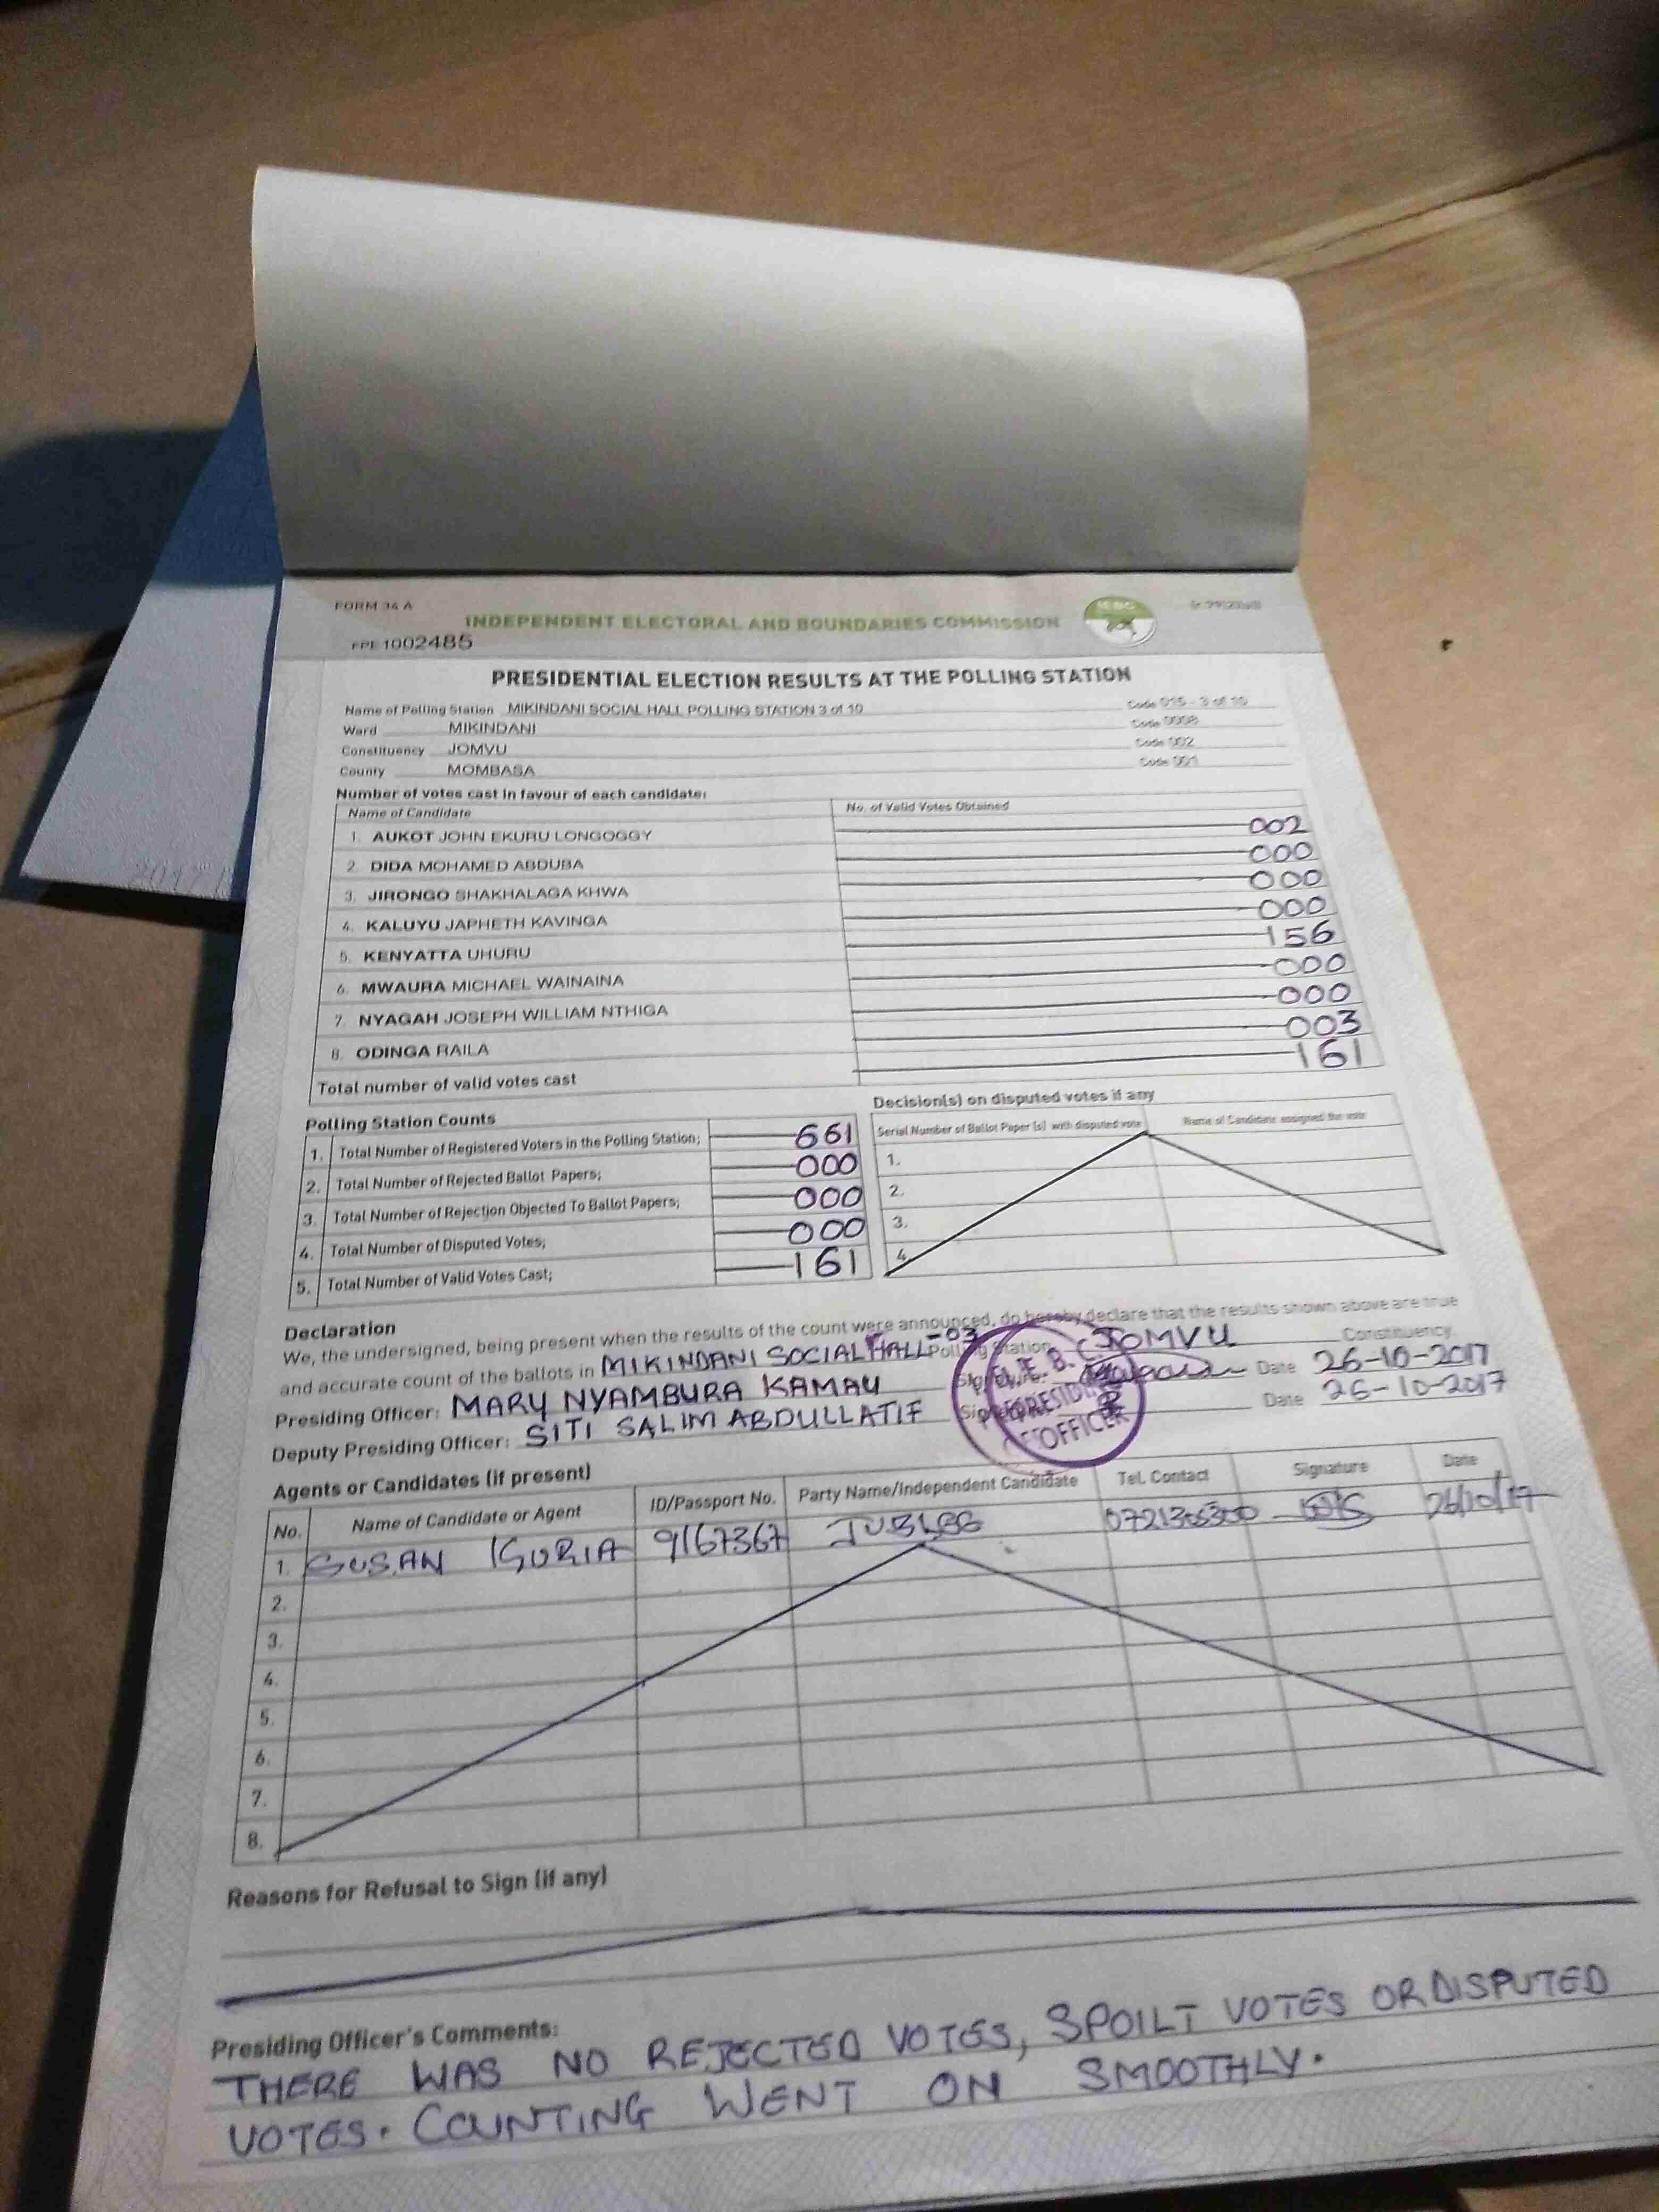 FORM 34 A
INDEPENDENT ELECTORAL AND BOUNDARIES COMMISSION
IEBC
FPE 1002485
PRESIDENTIAL ELECTION RESULTS AT THE POLLING STATION
Name of Polling Station MIKINDANI SOCIAL HALL POLLING STATION 3 of 10 Code 015 - 3 of 10
Ward MIKINDANI Code 0008
Constituency JOMVU Code 002
County MOMBASA Code 001
Number of votes cast in favour of each candidate:
Name of Candidate No. of Valid Votes Obtained
1. AUKOT JOHN EKURU LONGOGGY 002
2. DIDA MOHAMED ABDUBA 000
3. JIRONGO SHAKHALAGA KHWA 000
4. KALUYU JAPHETH KAVINGA 000
5. KENYATTA UHURU 156
6. MWAURA MICHAEL WAINAINA 000
7. NYAGAH JOSEPH WILLIAM NTHIGA 000
8. ODINGA RAILA 003
Total number of valid votes cast 161
Polling Station Counts
1. Total Number of Registered Voters in the Polling Station; 661
2. Total Number of Rejected Ballot Papers; 000
3. Total Number of Rejection Objected To Ballot Papers; 000
4. Total Number of Disputed Votes; 000
5. Total Number of Valid Votes Cast; 161
Decision(s) on disputed votes if any
Serial Number of Ballot Paper (s) with disputed vote Name of Candidate assigned the vote
1.
2.
3.
4.
Declaration
We, the undersigned, being present when the results of the count were announced, do hereby declare that the results shown above are true
and accurate count of the ballots in MIKINDANI SOCIAL HALL -03 Polling Station JOMVU Constituency
Presiding Officer: MARY NYAMBURA KAMAU Signature: Date 26-10-2017
Deputy Presiding Officer: SITI SALIM ABDULLATIF Signature: Date 26-10-2017
I. E. B. C.
PRESIDING
OFFICER
Agents or Candidates (if present)
No. Name of Candidate or Agent ID/Passport No. Party Name/Independent Candidate Tel. Contact Signature Date
1. SUSAN KURIA 9167367 JUBLEE 26/10/17
2.
3.
4.
5.
6.
7.
8.
Reasons for Refusal to Sign (if any)
Presiding Officer's Comments:
THERE WAS NO REJECTED VOTES, SPOILT VOTES OR DISPUTED
VOTES. COUNTING WENT ON SMOOTHLY.